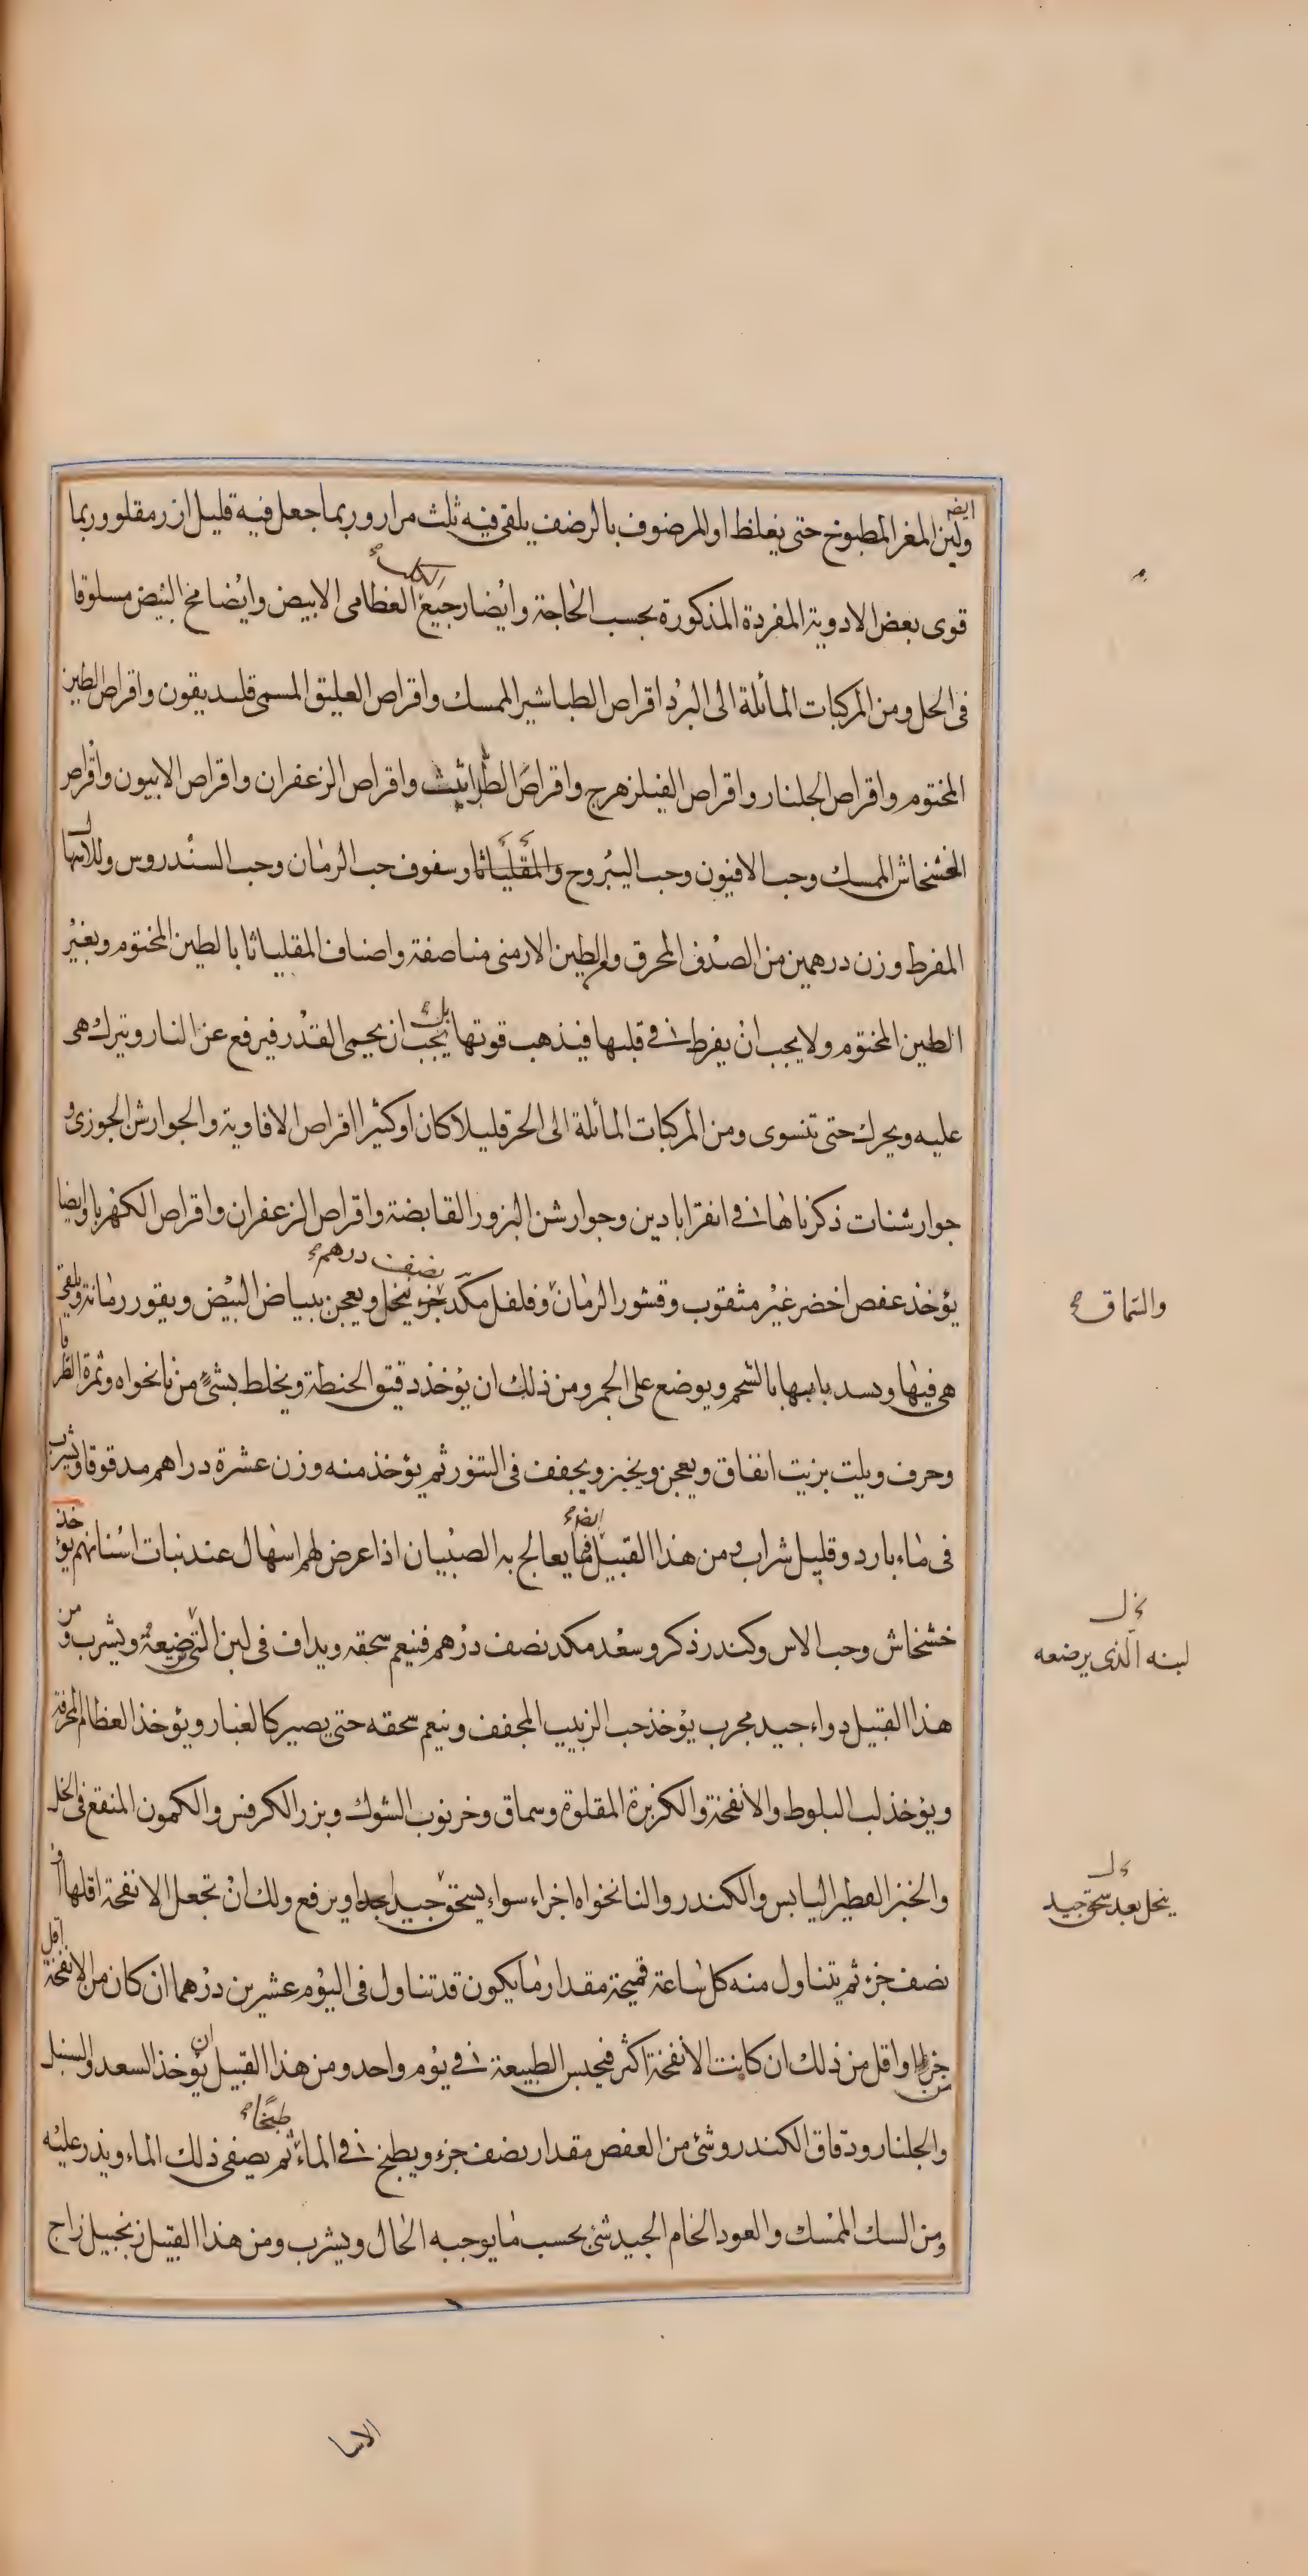 ولبن المغر المطبوخ حتى يغلظ او المرضوف بالرضف يلقى فيه ثلث مرار وربما جعل فيه قليل ارز مقلو وربما
ايضا
قوى بعض الادوية المفردة المذكورة بحسب الحاجة وايضا رجيع العظامى الابيض وايضا مخ البيض مسلوقا
الكلب
فى الخل ومن المركبات المائلة الى البرد اقراص الطباشير الممسك واقراص العليق المسمى قلنديقون واقراص الطين
المختوم واقراص الجلنار واقراص الفيلزهرج واقراص الطراثيث واقراص الزعفران واقراص الابيون واقراص
الخشخاش الممسك وحب الافيون وحب اليبروح والمقلياثا وسفوف حب الرمان وحب السندروس وللاسهال
المفرط وزن درهمين من الصدف المحرق والطين الارمنى مناصفة واصناف المقلياثا بالطين المختوم وبغير
الطين المختوم ولا يجب ان يفرط فى قليها فيذهب قوتها بل يجب ان يحمى القدر فيرفع عن النار ويترك هى
عليه ويحرك حتى تنسوى ومن المركبات المائلة الى الحر قليلا كان او كثيرا اقراص الافاوية والجوارش الجوزى و
جوارشنات ذكرناها فى انقراباذين وجوارشن البزور القابضة واقراص الزعفران واقراص الكهربا وايضا
يؤخذ عفص اخضر غير مثقوب وقشور الرمان وفلفل مكد جزء ينخل ويعجن ببياض البيض ويقور رمانة ويلقى
نصف درهم
والسماق صح
هى فيها ويسد بابها بالشحم ويوضع على الجمر ومن ذلك ان يؤخذ دقيق الحنطة ويخلط بشئ من نانخواه وثمرة الطرفا
وحرف ويلت بزيت انفاق ويعجن ويخبز ويجفف فى التنور ثم يؤخذ منه وزن عشرة دراهم مدقوقا ويشرب
فى ماء بارد وقليل شراب ومن هذا القبيل مما يعالج به الصبيان اذا عرض لهم اسهال عند نبات اسنانهم يؤخذ
ايضا
خشخاش وحب الاس وكندر ذكر وسعد مكد نصف درهم فينعم سحقه ويداف فى لبن التى ترضعه ويشرب ومن
لبنه الذى يرضعه
هذا القبيل دواء جيد مجرب يؤخذ حب الزبيب المجفف وينعم سحقه حتى يصير كالغبار ويؤخذ العظام المحرقة
ويؤخذ لب البلوط والانفحة والكزبرة المقلوة وسماق وخرنوب الشوك وبزر الكرفس والكمون المنقع فى الخل
والخبز الفطير اليابس والكندر والنانخواه اجزاء سواء يسحق جيدا جدا ويرفع ولك ان تجعل الانفحة اقلها او
ينخل بعد سحق جيد
نصف جزء ثم يتناول منه كل ساعة قميحة مقدار ما يكون قد تناول فى اليوم عشرين درهما ان كان من الانفحة اقل
من جزء او اقل من ذلك ان كانت الانفحة اكثر فيحبس الطبيعة فى يوم واحد ومن هذا القبيل ان يؤخذ السعد والسنبل
والجلنار ودقاق الكندر وشئ من العفص مقدار نصف جزء ويطبخ فى الماء ثم يصفى ذلك الماء ويذر عليه
طبخا
ومن السك الممسك والعود الخام الجيد شئ بحسب ما يوجبه الحال ويشرب ومن هذا القبيل زنجبيل زاج
الاسا